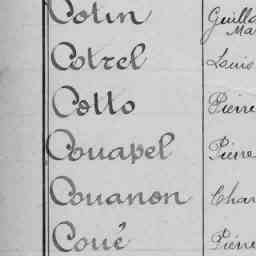 Cotin Guill
Ma
Cotrel Louis
Cotto Pierre
Couapel Pierre
Couanon Char
Coué Pierre